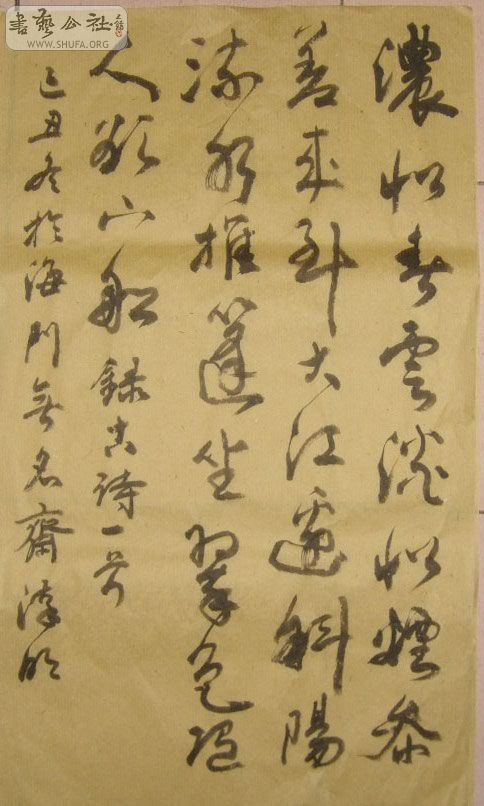 書藝公社
WWW.SHUFA.ORG
濃似春雲淡似煙參
差來到大江邊斜陽
流水推篷坐翠色隨
人欲上船 錄古詩一首
己丑冬於海門無名齋